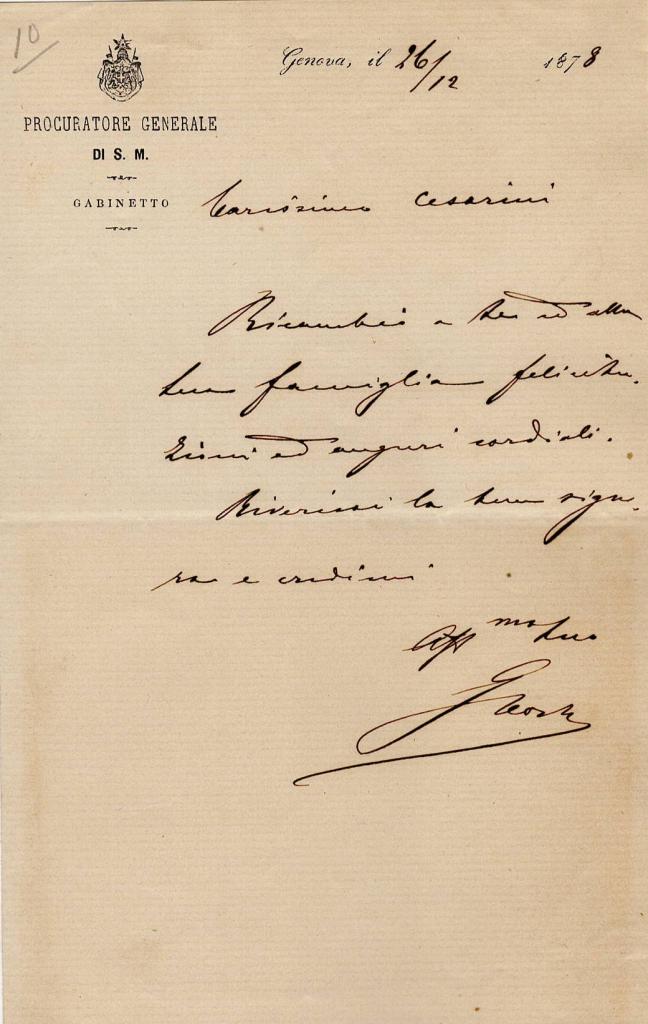 10
Genova, il 26/12 1878
PROCURATORE GENERALE
DI S. M.
GABINETTO
Carissimo Cesarini
Ricambio a te ed alla
tua famiglia felicita-
zioni ed auguri cordiali.
Riverisci la tua signo-
ra e credimi
Aff mo tuo